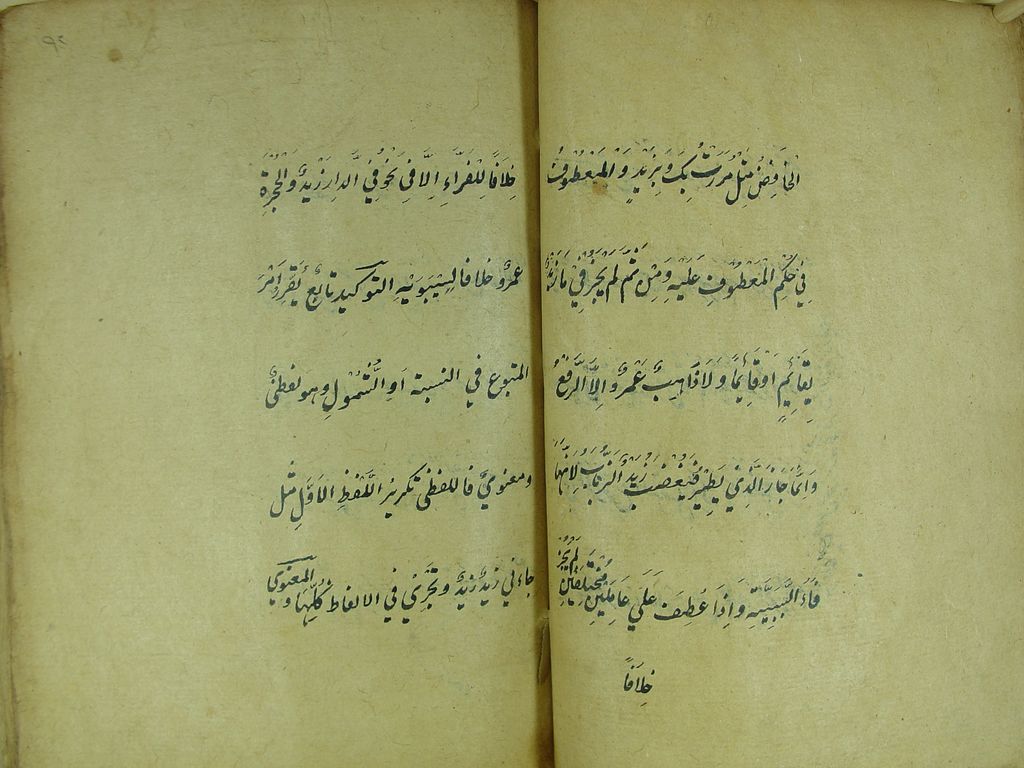 الخَافِضُ مِثْلُ مَرَرْتُ بِكَ وَبِزَيْدٍ وَالمَعْطُوفُ
فِي حُكْمِ المَعْطُوفِ عَلَيْهِ وَمِنْ ثَمَّ لَمْ يَجُزْ فِي مَا زَيْدٌ
بِقَائِمٍ اَوْ قَائِمًا وَلَا ذَاهِبٌ عَمْرٌو اِلَّا الرَّفْعُ
وَاِنَّمَا جَازَ الَّذِي يَطِيْرُ فَيَغْضَبُ زَيْدٌ الذُّبَابُ لِاَنَّهَا
فَاءُ السَّبَبِيَّةِ وَاِذَا عُطِفَ عَلَي عَامِلَيْنِ مُخْتَلِفَيْنِ لَمْ يَجُزْ
خِلَافًا
خِلَافًا لِلْفَرَّاءِ اِلَّا فِي نَحْوِ فِي الدَّارِ زَيْدٌ وَالحُجْرَةِ
عَمْرٌو خلافا لِسِيْبَوَيْهِ التوكيد تابعٌ يُقَرِّرُ اَمْرَ
المتبوع في النسبة اَوِ الشُّمُوْلِ وهو لفظىٌّ
ومعنوىٌّ فاللفظىُّ تكريرُ اللَّفْظِ الاَوَّلِ مثل
جاءنى زيدٌ زيدٌ ويَجْرِيْ في الالفاظ كُلِّهَا والمعنوي